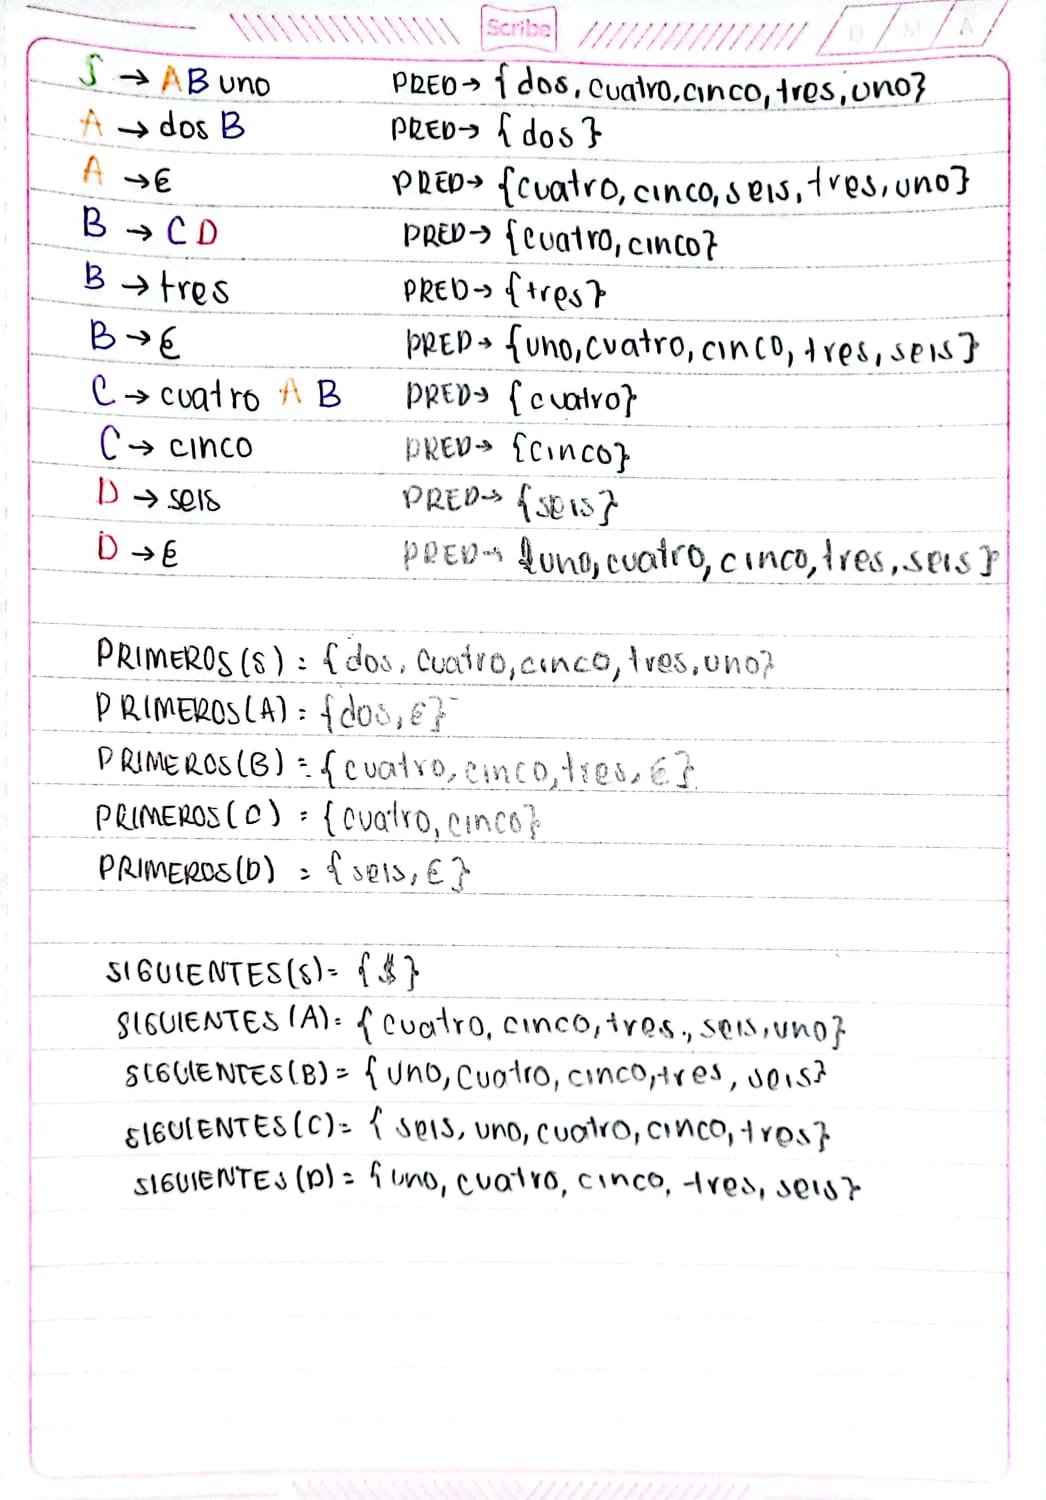 Scribe
D M A
S → A B uno PRED → {dos, cuatro, cinco, tres, uno}
A → dos B PRED → {dos}
A → Є PRED → {cuatro, cinco, seis, tres, uno}
B → C D PRED → {cuatro, cinco}
B → tres PRED → {tres}
B → Є PRED → {uno, cuatro, cinco, tres, seis}
C → cuatro A B PRED → {cuatro}
C → cinco PRED → {cinco}
D → seis PRED → {seis}
D → Є PRED → {uno, cuatro, cinco, tres, seis}
PRIMEROS(S) = {dos, cuatro, cinco, tres, uno}
PRIMEROS(A) = {dos, Є}
PRIMEROS(B) = {cuatro, cinco, tres, Є}
PRIMEROS(C) = {cuatro, cinco}
PRIMEROS(D) = {seis, Є}
SIGUIENTES(S) = {$}
SIGUIENTES(A) = {cuatro, cinco, tres, seis, uno}
SIGUIENTES(B) = {uno, cuatro, cinco, tres, seis}
SIGUIENTES(C) = {seis, uno, cuatro, cinco, tres}
SIGUIENTES(D) = {uno, cuatro, cinco, tres, seis}